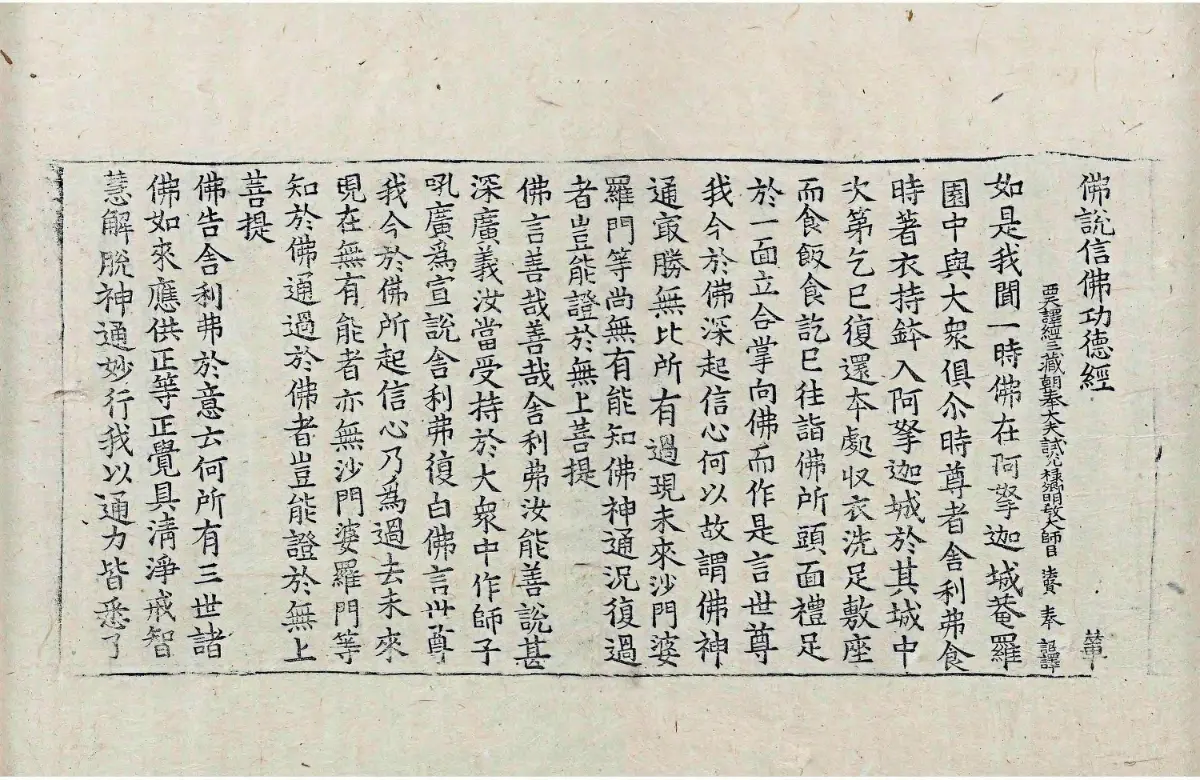 佛說信佛功德經
西天譯經三藏朝奉大夫試光祿卿明教大師臣 法賢 奉 詔譯
如是我聞一時佛在阿拏迦城菴羅
園中與大衆俱尒時尊者舍利弗食
時著衣持鉢入阿拏迦城於其城中
次第乞已復還本處収衣洗足敷座
而食飯食訖已往詣佛所頭面禮足
於一面立合掌向佛而作是言世尊
我今於佛深起信心何以故謂佛神
通㝡勝無比所有過現未來沙門婆
羅門等尚無有能知佛神通況復過
者豈能證於無上菩提
佛言善哉善哉舍利弗汝能善說甚
深廣義汝當受持於大衆中作師子
吼廣爲宣說舍利弗復白佛言世尊
我今於佛所起信心乃爲過去未來
現在無有能者亦無沙門婆羅門等
知於佛通過於佛者豈能證於無上
菩提
佛告舍利弗於意云何所有三世諸
佛如來應供正等正覺具清淨戒智
慧解脫神通妙行我以通力皆悉了